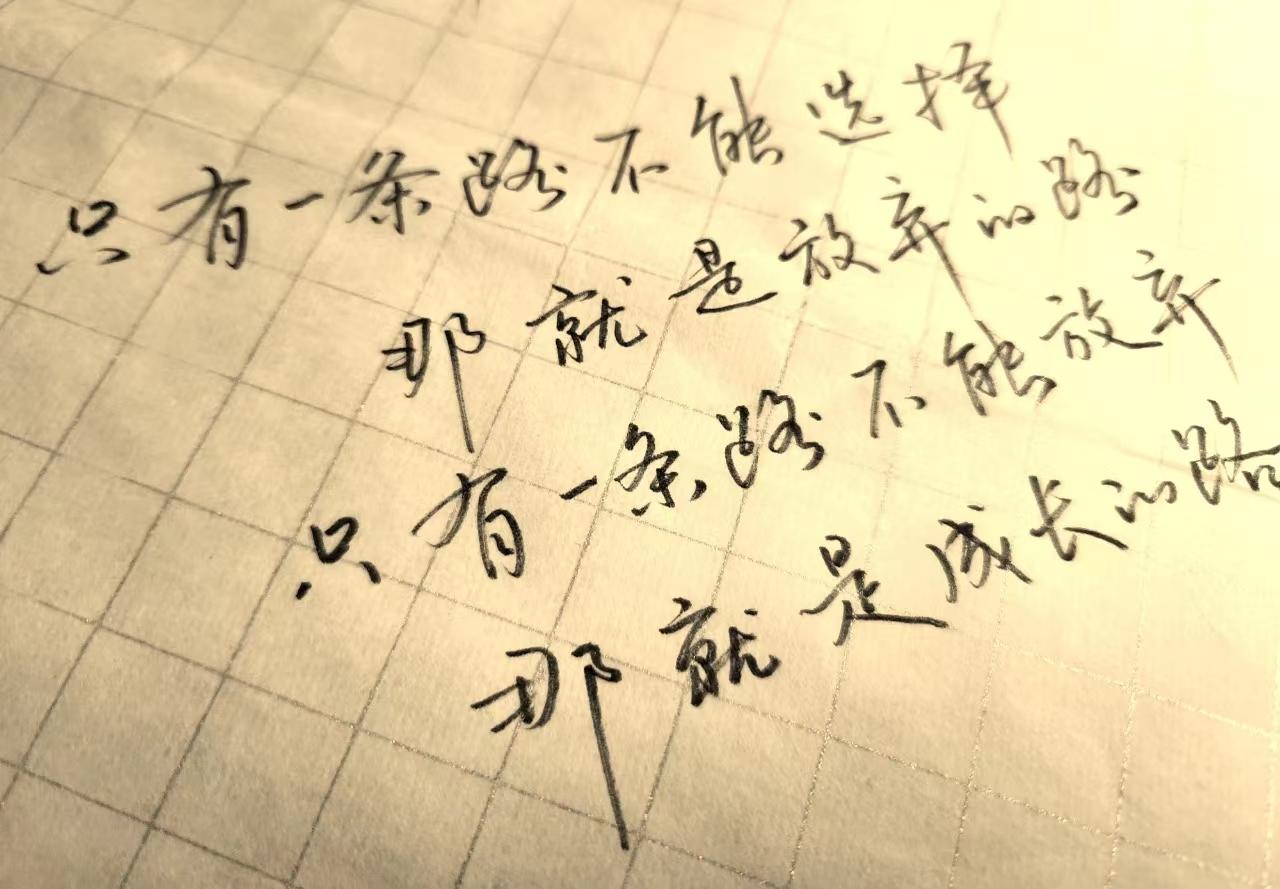 只有一条路不能选择
那就是放弃的路
只有一条路不能放弃
那就是成长的路